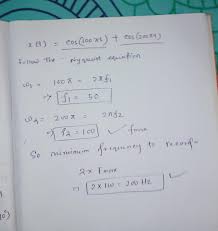 x(t) = cos(100πt) + cos(200πt)
follow the nyquist equation
ω1 = 100π = 2πf1
⇒ f1 = 50
ω2 = 200π = 2πf2
⇒ f2 = 100 ✓ fmax
So minimum frequency to record =
2 x Fmax
⇒ 2 x 100 = 200 Hz ✓